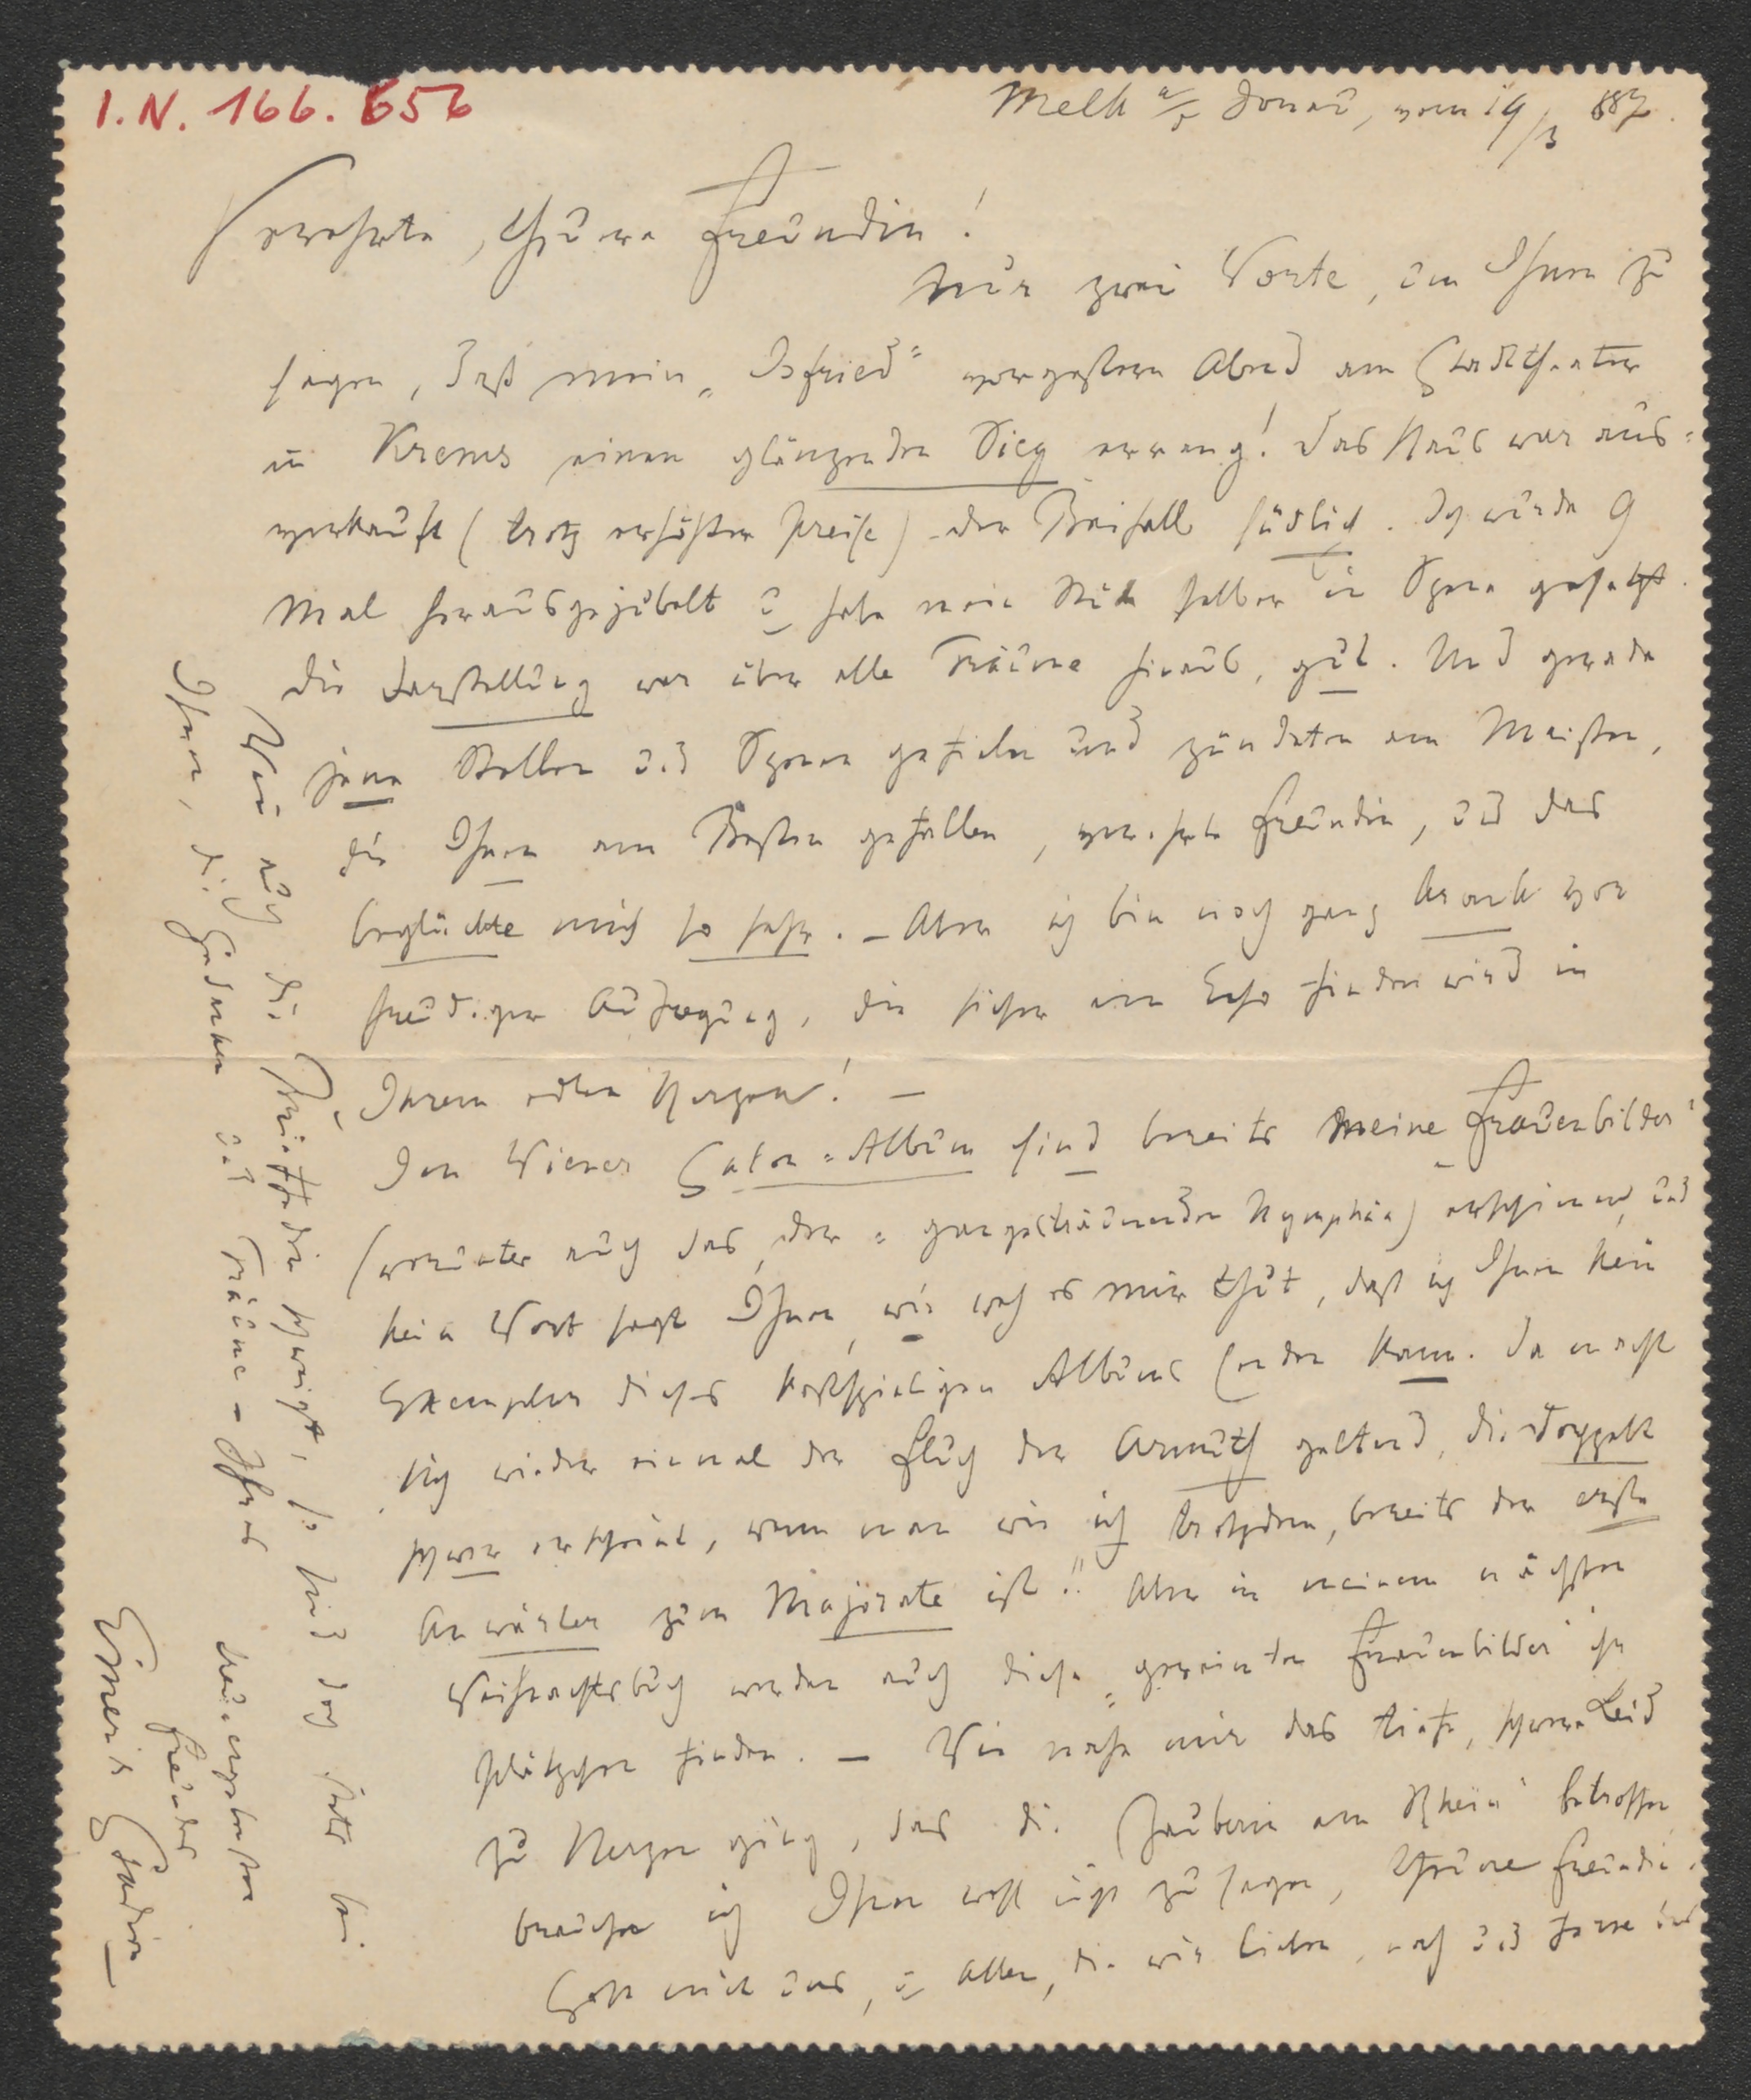 I.N. 166.656
Melk a/d Donau, vom 19/3 887.
Verehrte, theure Freundin!
Nur zwei Worte, um Ihnen zu
sagen, daß mein „Isfried“ vorgestern Abend am Stadttheater
in Krems einen glänzenden Sieg errang! Das Haus war aus=
verkauft (trotz erhöhter Preise) der Beifall südlich. Ich wurde 9
Mal herausgejubelt u habe mein Stück selber in Szene gesetzt.
Die Darstellung war über alle Träume hinaus, gut. Und gerade
jene Stellen und Szenen gefielen und zündeten am Meisten,
die Ihnen am Besten gefallen, verehrte Freundin, und das
beglückte mich so sehr. – Aber ich bin noch ganz krank vor
freudiger Aufregung, die sicher ein Echo finden wird in
Ihrem edlen Herzen! –
Im Wiener Salon=Album sind bereits meine „Frauenbilder“
(worunter auch das der = Nymphäa) erschienen, und
kein Wort sagt Ihnen, wie weh es mir thut, daß ich Ihnen kein
Exemplar dieses kostspieligen Albums senden kann. Da macht
sich wieder einmal der Fluch der Armuth geltend, die doppelt
schwer erscheint, wenn man wie ich trotzdem, bereits der erste
Anwärter zum Majorate ist!! Aber in meinem nächsten
Weihnachtsbuch werden auch diese „gereimten Frauenbilder“ ihr
Plätzchen finden. – Wie nahe mir das tiefe, schwere Leid
zu Herzen ging, das die Zauberin am Rhein betroffen
brauche ich Ihnen wohl nicht zu sagen, theure Freundin.
Gott mit uns, u Allen, die wir lieben, nah und ferne und
Wenn auch die Brieffeder schweigt, so sind doch stets bei
Ihnen, die Gedanken und Träume – Ihres
treuergebensten
Freundes